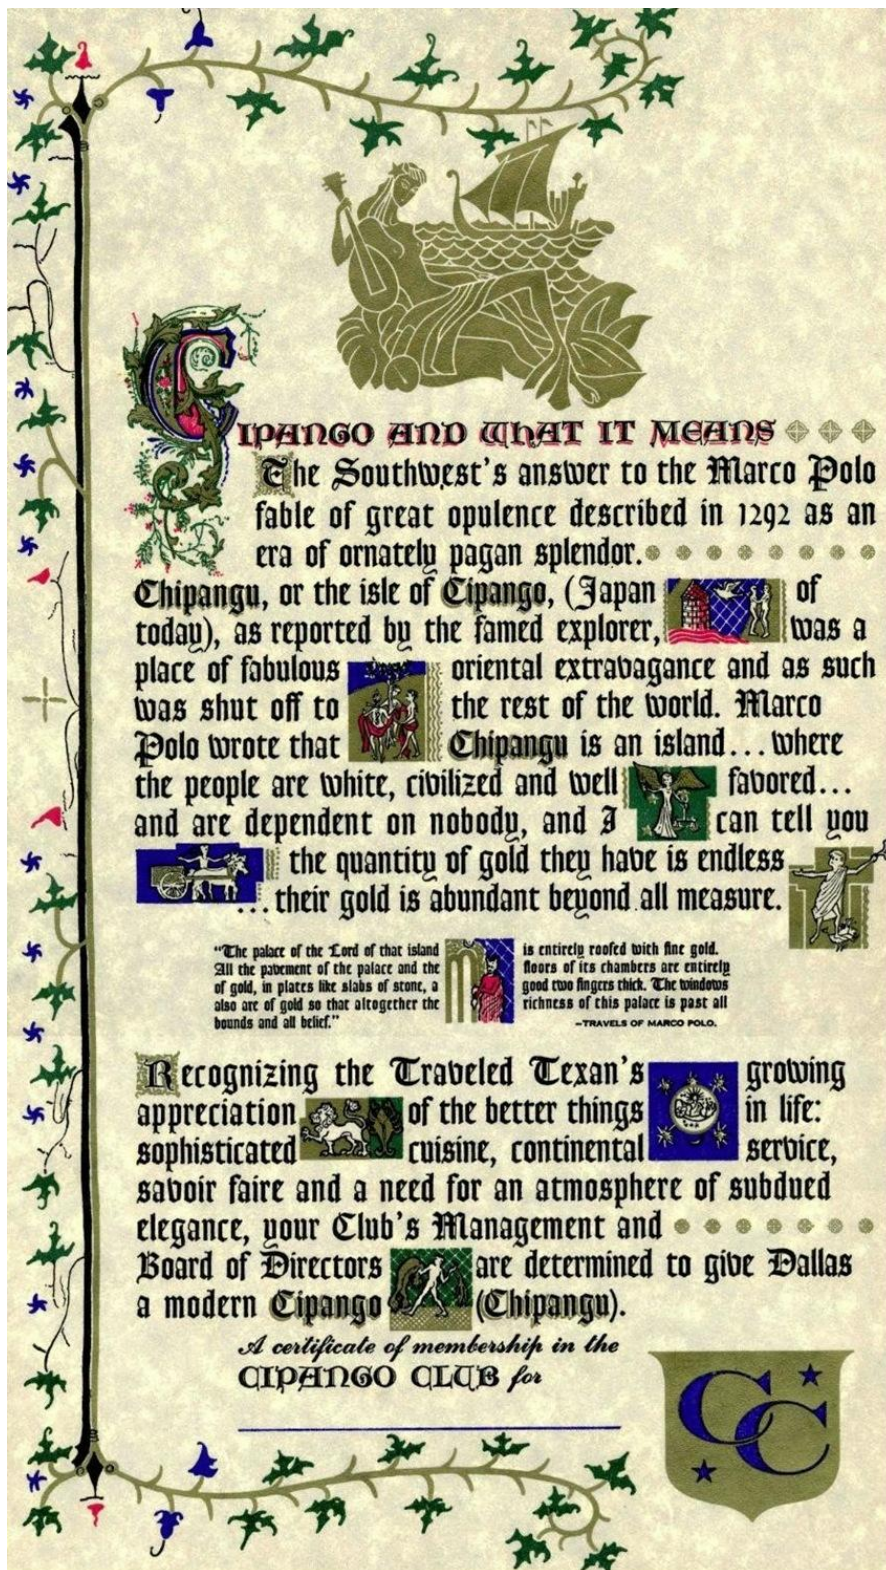 CIPANGO AND WHAT IT MEANS
The Southwest's answer to the Marco Polo
fable of great opulence described in 1292 as an
era of ornately pagan splendor.
Chipangu, or the isle of Cipango, (Japan of
today), as reported by the famed explorer, was a
place of fabulous oriental extravagance and as such
was shut off to the rest of the world. Marco
Polo wrote that Chipangu is an island...where
the people are white, civilized and well favored...
and are dependent on nobody, and I can tell you
the quantity of gold they have is endless
...their gold is abundant beyond all measure.
"The palace of the Lord of that island is entirely roofed with fine gold.
All the pavement of the palace and the floors of its chambers are entirely
of gold, in plates like slabs of stone, a good two fingers thick. The windows
also are of gold so that altogether the richness of this palace is past all
bounds and all belief."
–TRAVELS OF MARCO POLO.
Recognizing the Traveled Texan's growing
appreciation of the better things in life:
sophisticated cuisine, continental service,
savoir faire and a need for an atmosphere of subdued
elegance, your Club's Management and
Board of Directors are determined to give Dallas
a modern Cipango (Chipangu).
A certificate of membership in the
CIPANGO CLUB for
CC